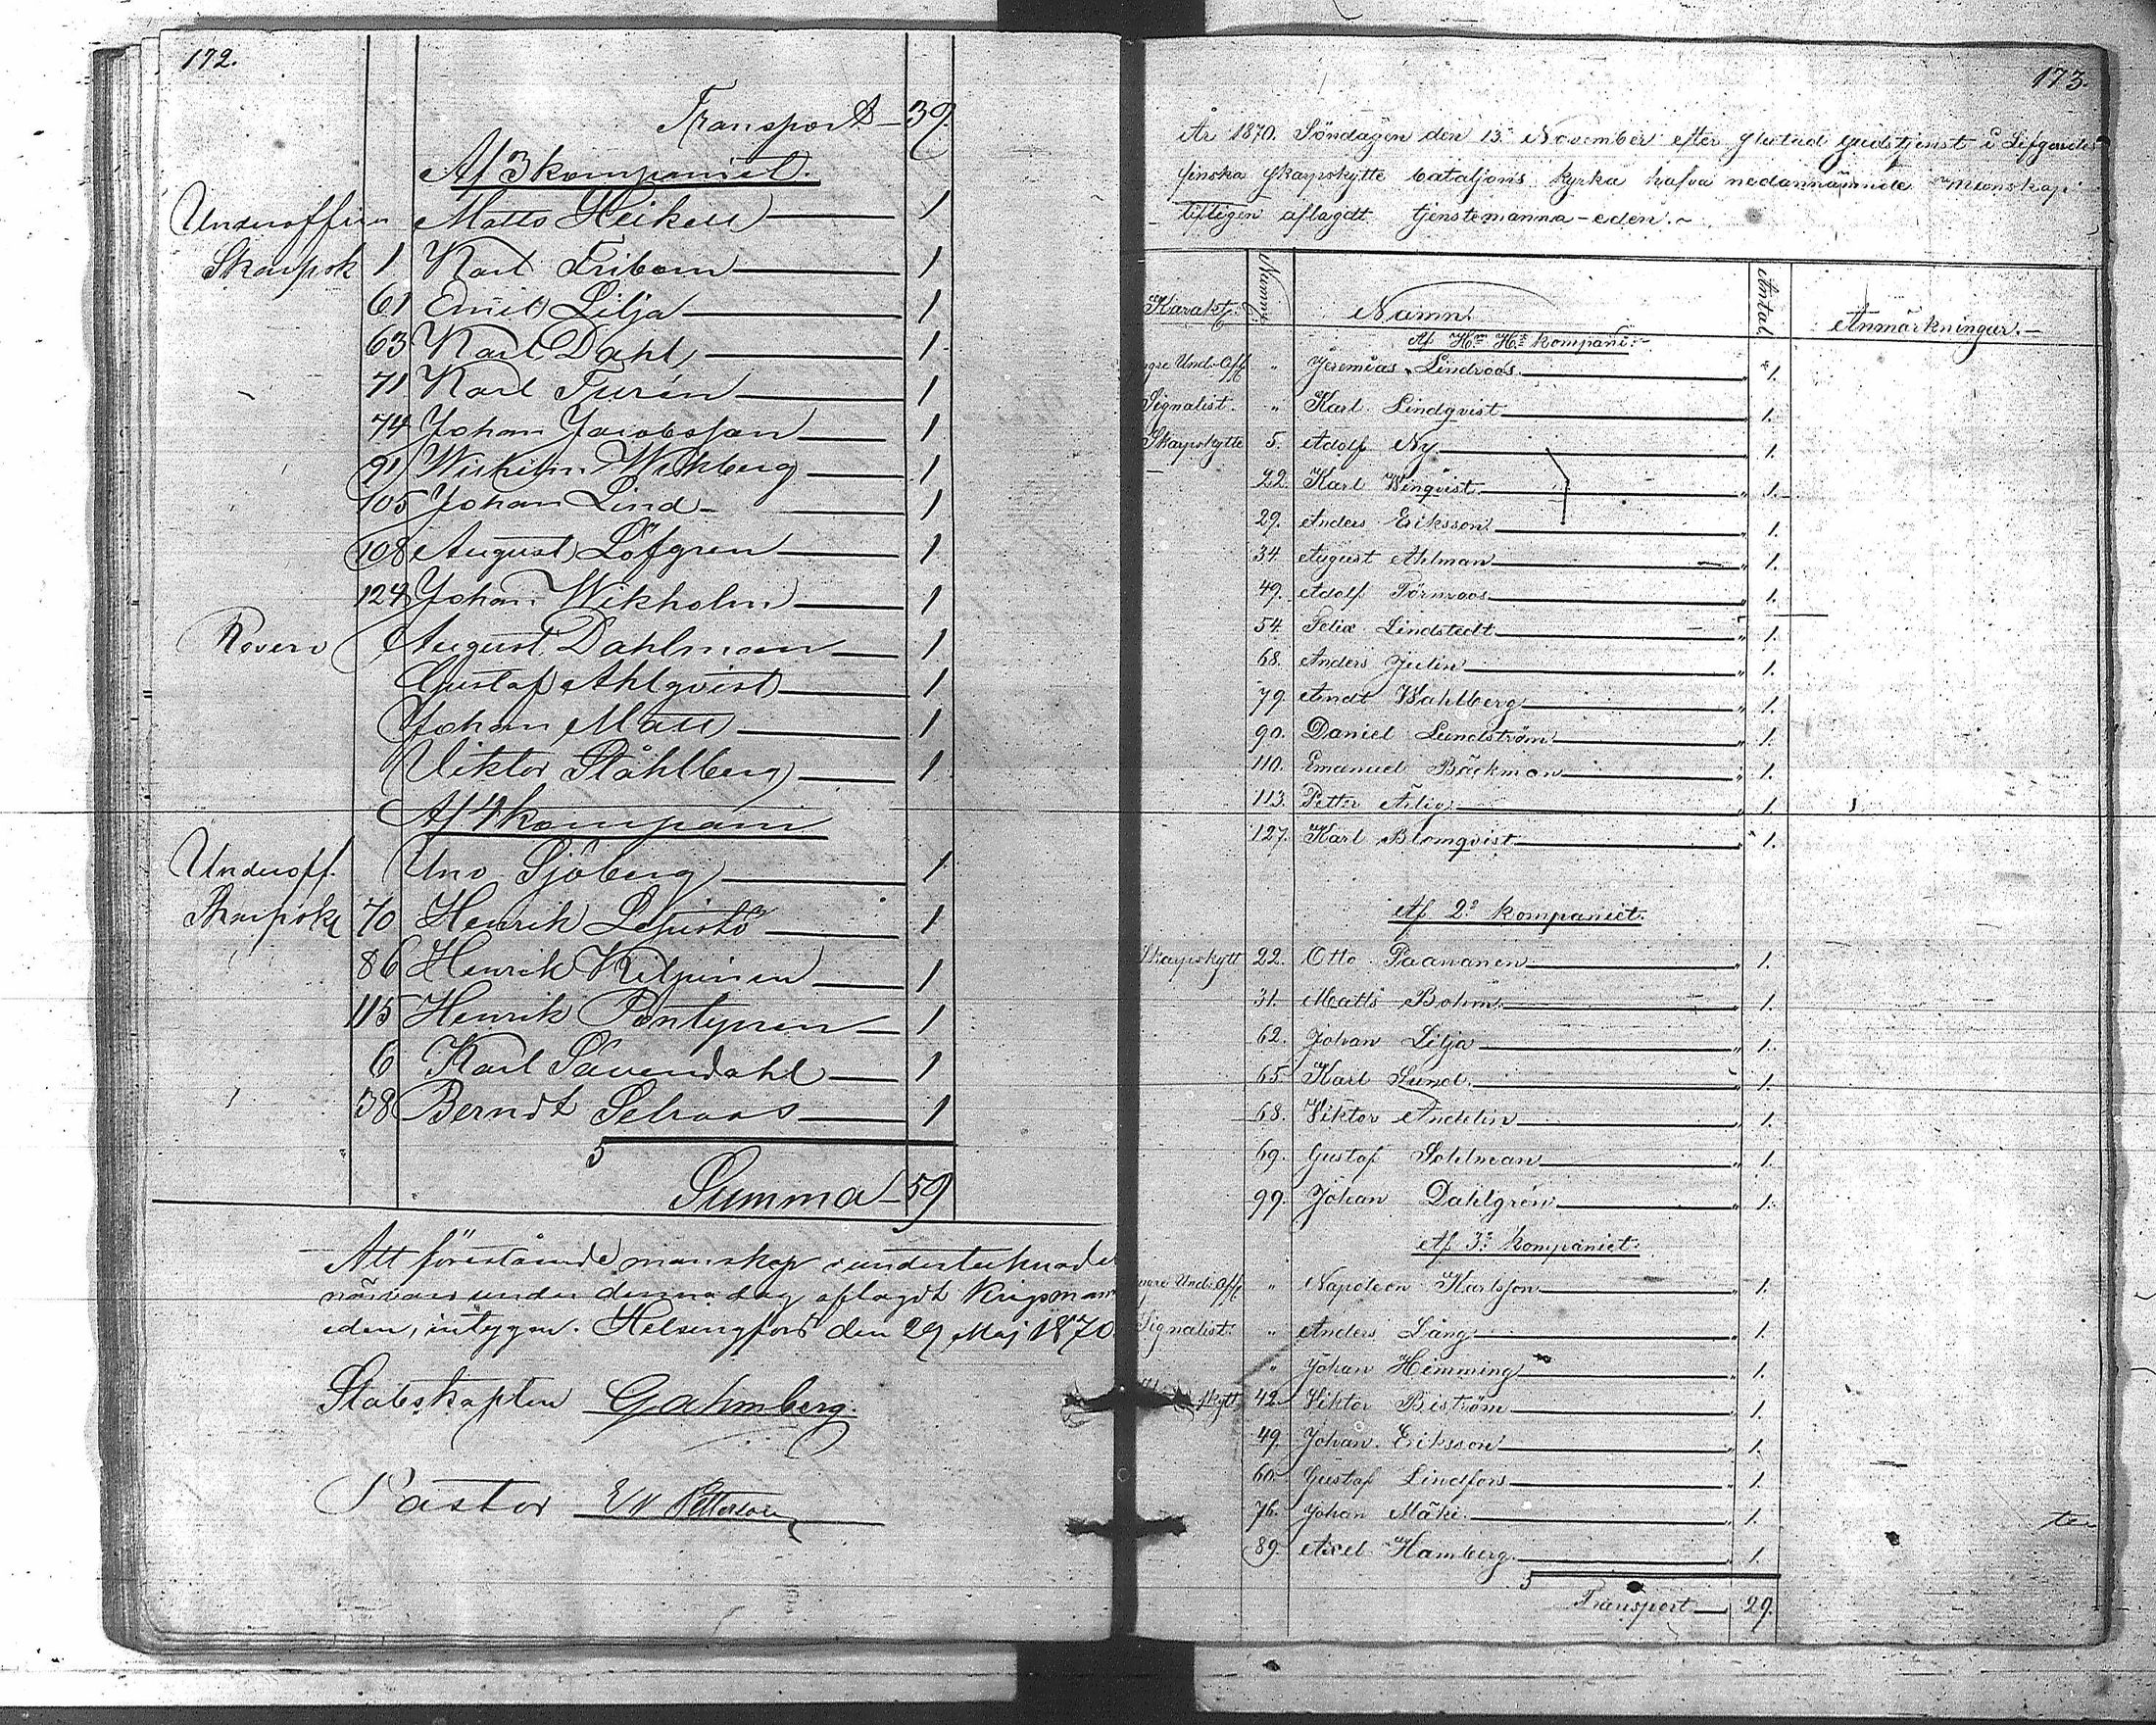 172.
Transport 39
Af 3 kompaniet.
Underofficer Matts Heikell 1
Skarpsk 1 Karl Fribom 1
61 Emil Lilja 1
63 Karl Dahl 1
71 Karl Turén 1
74 Johan Jacobsson 1
91 Wilhelm Wikberg 1
105 Johan Lind 1
108 August Löfgren 1
124 Johan Wikholm 1
Reserv August Dahlman 1
Gustaf Ahlqvist 1
Johan Matt 1
Viktor Ståhlberg 1
Af 4 kompani
Underoff. Uno Sjöberg 1
Skarpsk 70 Henrik Lepistö 1
86 Henrik Kilpinen 1
115 Henrik Pentynen 1
6 Karl Sävendahl 1
38 Berndt Selroos 1
5
Summa 59
Att förestående manskap i undertecknades
närvaro under denna dag aflagdt krigsmans
eden, intygar. Helsingfors den 29 Maj 1870.
Stabskapten Gahmberg.
Pastor E W Pettersson
173.
År 1870. Söndagen den 13. November efter slutad gudstjenst i Lifgardes
finska skarpskytte bataljons kyrka hafva nedannämnde manskap
lifligen aflagdt tjenstemanna-eden.
Karakt. Nummer Namn. Antal. Anmärkningar.
Af H: H: kompani.
ngre Und. Off. " Jeremias Lindroos 1.
Signalist. " Karl Lindqvist 1.
Skarpskytte 5. Adolf Ny 1.
22. Karl Winqvist 1.
29. Anders Eriksson 1.
34. August Ahlman 1.
49. Adolf Törnroos 1.
54. Felix Lindstedt 1.
68. Anders Julin 1.
79. Andt Wahlberg 1.
90. Daniel Lundström 1.
110. Emanuel Bäckman 1.
113. Petter Arlig 1.
127. Karl Blomqvist 1.
Af 2: kompaniet.
Skarpskytt 22. Otto Paananen 1.
31. Matts Bohm 1.
62. Johan Lilja 1.
65. Karl Lund 1.
68. Viktor Andelin 1.
69. Gustaf Sohlman 1.
99. Johan Dahlgrén 1.
Af 3: kompaniet.
ngre Und. Off. " Napoleon Karlsson 1.
Signalist. " Anders Lång 1.
" Johan Hemming 1.
skytt 42. Viktor Biström 1.
49. Johan Eriksson 1.
60. Gustaf Lindfors 1.
76. Johan Mäki 1.
89. Axel Hamberg 1.
5
Transport 29.